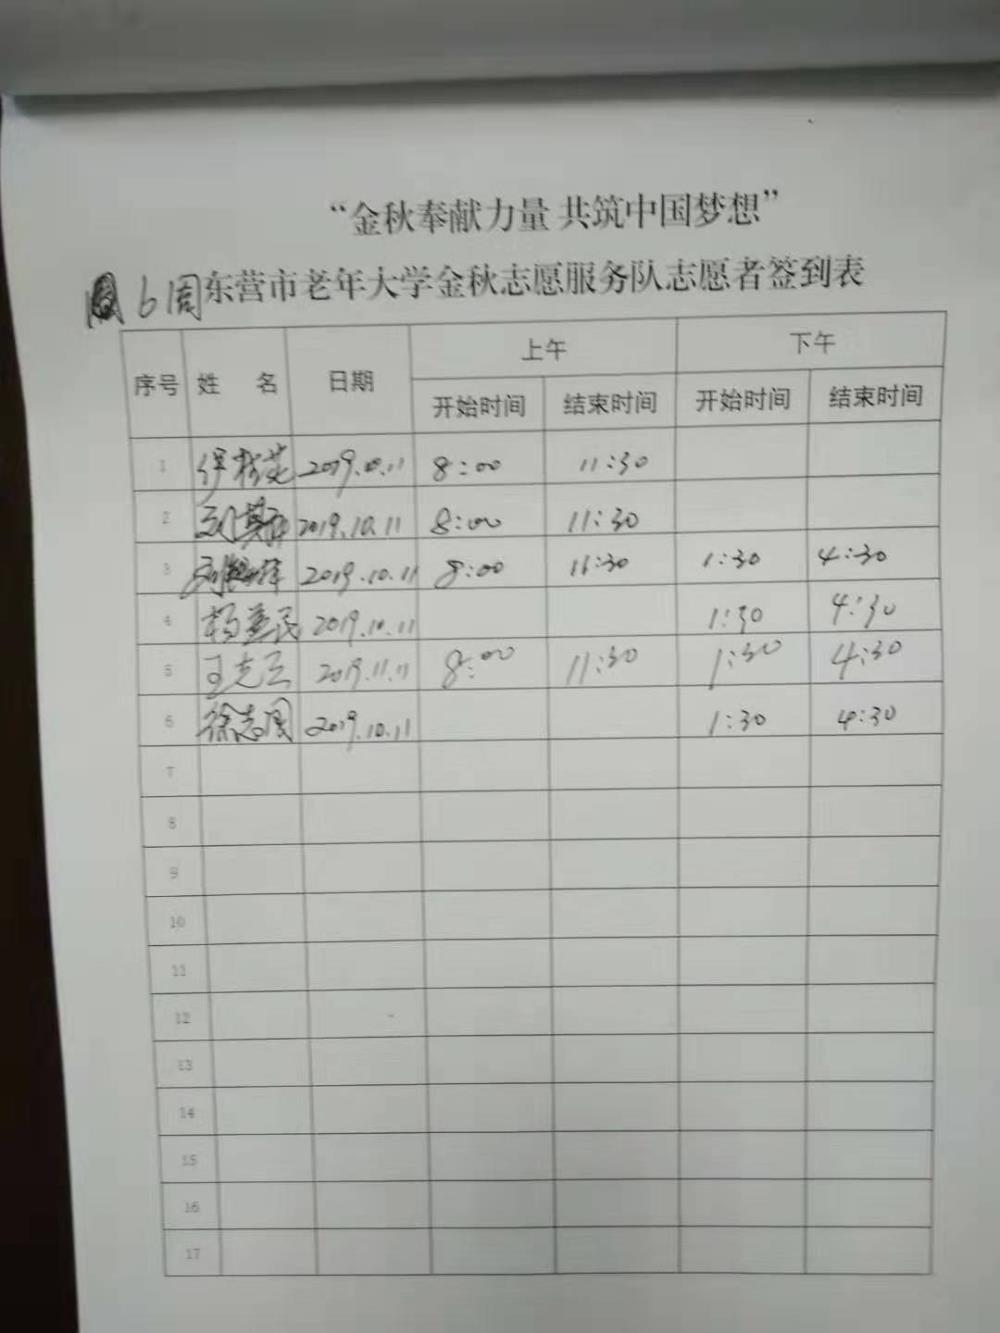 “金秋奉献力量 共筑中国梦想”
6周 东营市老年大学金秋志愿服务队志愿者签到表
序号 姓 名 日期 上午 下午
开始时间 结束时间 开始时间 结束时间
1 2019.10.11 8:00 11:30
2 2019.10.11 8:00 11:30
3 2019.10.11 8:00 11:30 1:30 4:30
4 2019.10.11 1:30 4:30
5 王志云 2019.11.11 8:00 11:30 1:30 4:30
6 徐志国 2019.10.11 1:30 4:30
7
8
9
10
11
12
13
14
15
16
17